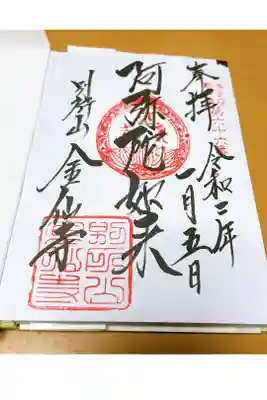 奉拝 令和二年
一月五日
阿弥陀如来
別所山 金仙寺